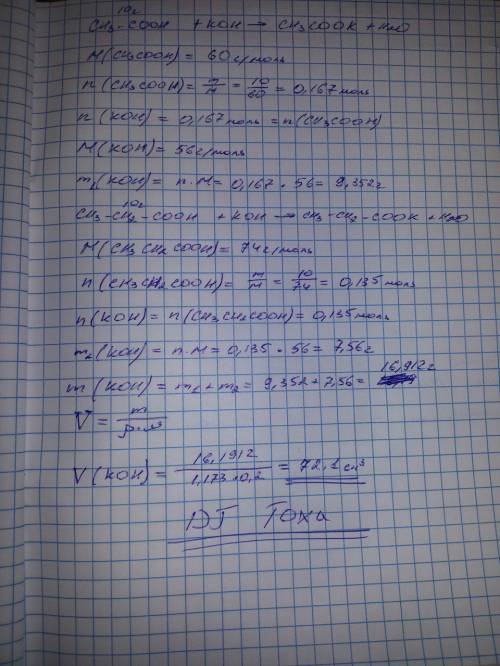 10г
CH3-COOH + KOH → CH3COOK + H2O
M(CH3COOH) = 60 г/моль
n(CH3COOH) = m/M = 10/60 = 0,167 моль
n(KOH) = 0,167 моль = n(CH3COOH)
M(KOH) = 56 г/моль
m1(KOH) = n·M = 0,167 · 56 = 9,352 г
10г
CH3-CH2-COOH + KOH → CH3-CH2-COOK + H2O
M(CH3CH2COOH) = 74 г/моль
n(CH3CH2COOH) = m/M = 10/74 = 0,135 моль
n(KOH) = n(CH3CH2COOH) = 0,135 моль
m2(KOH) = n·M = 0,135 · 56 = 7,56 г
m(KOH) = m1 + m2 = 9,352 + 7,56 = 16,912 г
V = m/ρ·ω
V(KOH) = 16,1912/1,173·0,2 = 72,1 см³
DJ Тоха